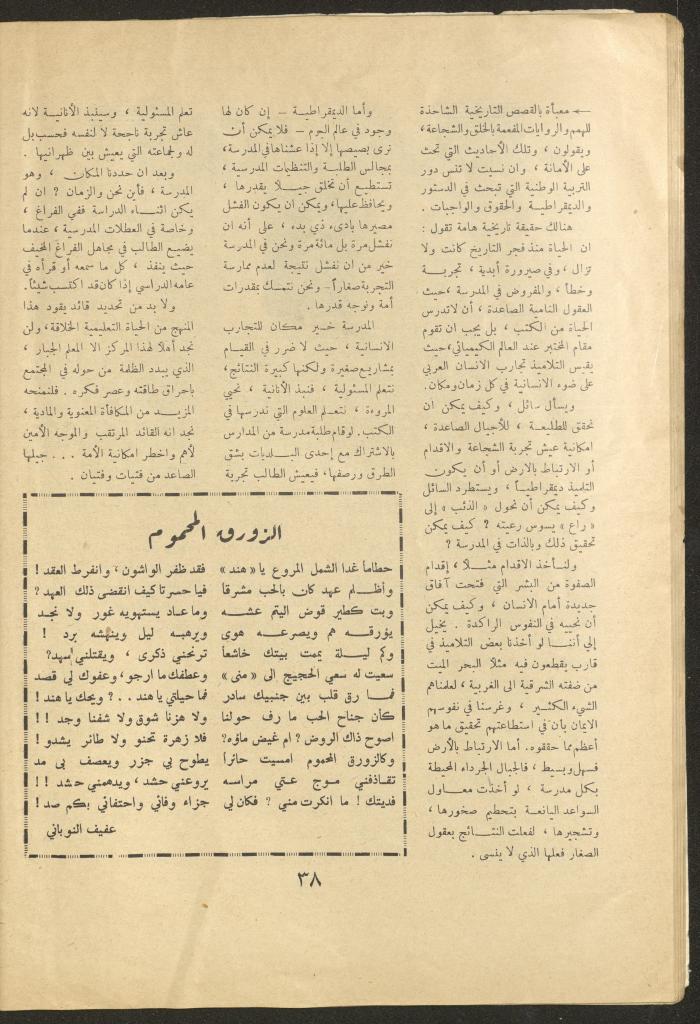 ← معبأة بالقصص التاريخية الشاحذة
للهمم والروايات المفعمة بالخلق والشجاعة،
ويقولون ، وتلك الأحاديث التي تحث
على الأمانة ، وان نسيت لا تنس دور
التربية الوطنية التي تبحث في الدستور
والديمقراطيـة والحقوق والواجبات .
هنالك حقيقة تاريخية هامة تقول :
ان الحياة منذ فجر التاريخ كانت ولا
تزال ، وفي صيرورة أبدية ، تجربـة
وخطأ ، والمفروض في المدرسة ، حيث
العقول النامية الصاعدة ، أن لا تدرس
الحياة من الكتب ، بل يجب ان تقوم
مقام المختبر عند العالم الكيميائي، حيث
يقبس التلاميذ تجارب الانسان العربي
على ضوء الانسانية في كل زمان ومكان.
ويسأل سائل ، وكيف يمكن ان
تحقق للطليعـة ، للأجيال الصاعدة ،
امكانية عيش تجربة الشجاعة والاقدام
أو الارتباط بالارض أو أن يكون
التلميذ ديمقراطيـاً ، ويستطرد السائل
وكيف يمكن أن نحول « الذئب » إلى
« راع » يسوس رعيته ? كيف يمكن
تحقيق ذلك وبالذات في المدرسة ?
ولنـأخذ الاقدام مثـلا ، إقدام
الصفوة من البشر التي فتحت آفاق
جديدة أمام الانسان ، وكيف يمكن
أن نحييه في النفوس الراكدة . يخيل
إلي أننـا لو أخذنا بعض التلاميذ في
قارب يقطعون فيه مثلاً البحر الميت
من ضفته الشرقية الى الغربية ، لعلمناهم
الشيء الكثير ، وغرسنا في نفوسهم
الايمان بأن في استطاعتهم تحقيق ما هو
أعظم مما حققوه. أما الارتباط بالأرض
فسهل وبسيط ، فالجبال الجرداء المحيطة
بكل مدرسة ، لو أخذت معـاول
السواعد اليانعـة بتحطيم صخورها ،
وتشجيرها ، لفعلت النتـائج بعقول
الصغار فعلها الذي لا ينسى .
وأما الديمقراطيـة – إن كان لها
وجود في عالم اليوم – فلا يمكن أن
نرى بصيصها إلا إذا عشناها في المدرسة،
بمجالس الطلبـة والتنظيمات المدرسية ،
تستطيع أن تخلق جيـلا يقدرها ،
ويحافظ عليها، ويمكن ان يكون الفشل
مصيرها بادىء ذي بدء ، على أنه ان
نفشل مرة بل مائة مرة ونحن في المدرسة
خير من ان نفشل نتيجة لعدم ممارسة
التجربة صغاراً – ونحن نتمسك بمقدرات
أمة ونوجه قدرها .
المدرسة خـير مكان للتجارب
الانسانية ، حيث لا ضرر في القيـام
بمشاريع صغيرة ولكنها كبيرة النتائج،
نتعلم المسئولية ، فنبذ الأنانية ، نحيي
المروءة ، نتعـلم العلوم التي ندرسها في
الكتب. لو قام طلبة مدرسة من المدارس
بالاشتراك مع إحدى البـلديات بشق
الطرق ورصفها، فيعيش الطالب تجربة
تعلم المسئولية ، وسينبذ الأنانية لانه
عاش تجربة ناجحة لا لنفسه فحسب بل
له ولجماعته التي يعيش بين ظهرانيها .
وبعد ان حددنا المكان ، وهو
المدرسة ، فأين نحن والزمان ? ان لم
يكن اثنـاء الدراسة ففي الفراغ ،
وخاصة في العطلات المدرسية ، عندما
يضيع الطالب في مجاهل الفراغ المخيف
حيث ينفذ ، كل ما سمعه أو قرأه في
عامه الدراسي إذا كان قد اكتسب شيئاً.
ولا بد من تحديد قائد يقود هذا
المنهج من الحياة التعليمية الخلاقة، ولن
نجد أهلاً لهذا المركز الا المعلم الجبار ،
الذي يبدد الظلمة من حوله في المجتمع
باحراق طاقته وعصر فكره . فلنمنحه
المزيـد من المكافأة المعنوية والمادية ،
نجد انه القائد المرتقب والموجه الأمين
لأهم واخطر امكانية الأمة ... جيلها
الصاعد من فتيات وفتيان .
الزورق المحموم
حطاماً غدا الشمل المروع يا « هند » فقد ظفر الواشون ، وانفرط العقد !
وأظـلم عهد كان بالحب مشرقا فيا حسرتا كيف انقضى ذلك العهد ?
وبت كطير قوض اليتم عشـه وما عـاد يستهويه غور ولا نجـد
يؤرقـه هم ويصرعـه هوى ويرهبـه ليل وينهشه برد !
وكم ليـلة يممت بيتك خاشعاً ترنحني ذكرى ، ويقتلني سهد?
سعيت له سعي الحجيج الى « منى » وعطفك ما ارجو، وعفوك لي قصد
فمـا رق قلب بين جنبيك سادر فما حيلتي يا هند . . ? ويحك يا هند !
كأن جناح الحب ما رف حولنا ولا هزنا شوق ولا شفنا وجد !!
اصوح ذاك الروض ? ام غيض ماؤه? فلا زهرة تحنو ولا طائر يشدو !
وكالزورق المحموم امسيت حائراً يطوح بي جزر ويعصف بي مد
تقـاذفني مـوج عـتي مراسـه يروعني حشد ، ويدهمني حشد !!
فديتك ! ما انكرت مني ? فكان لي جزاء وفائي واحتفائي بكم صد !
عفيف النوباني
٣٨